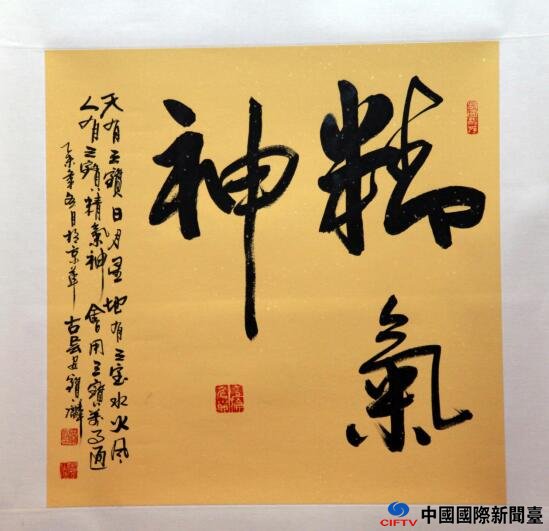 精氣
神
天有三寶日月星地有三宝水火風
人有三寶精氣神會用三寶萬事通
乙未年冬月於京華
CIFTV 中國國際新聞臺